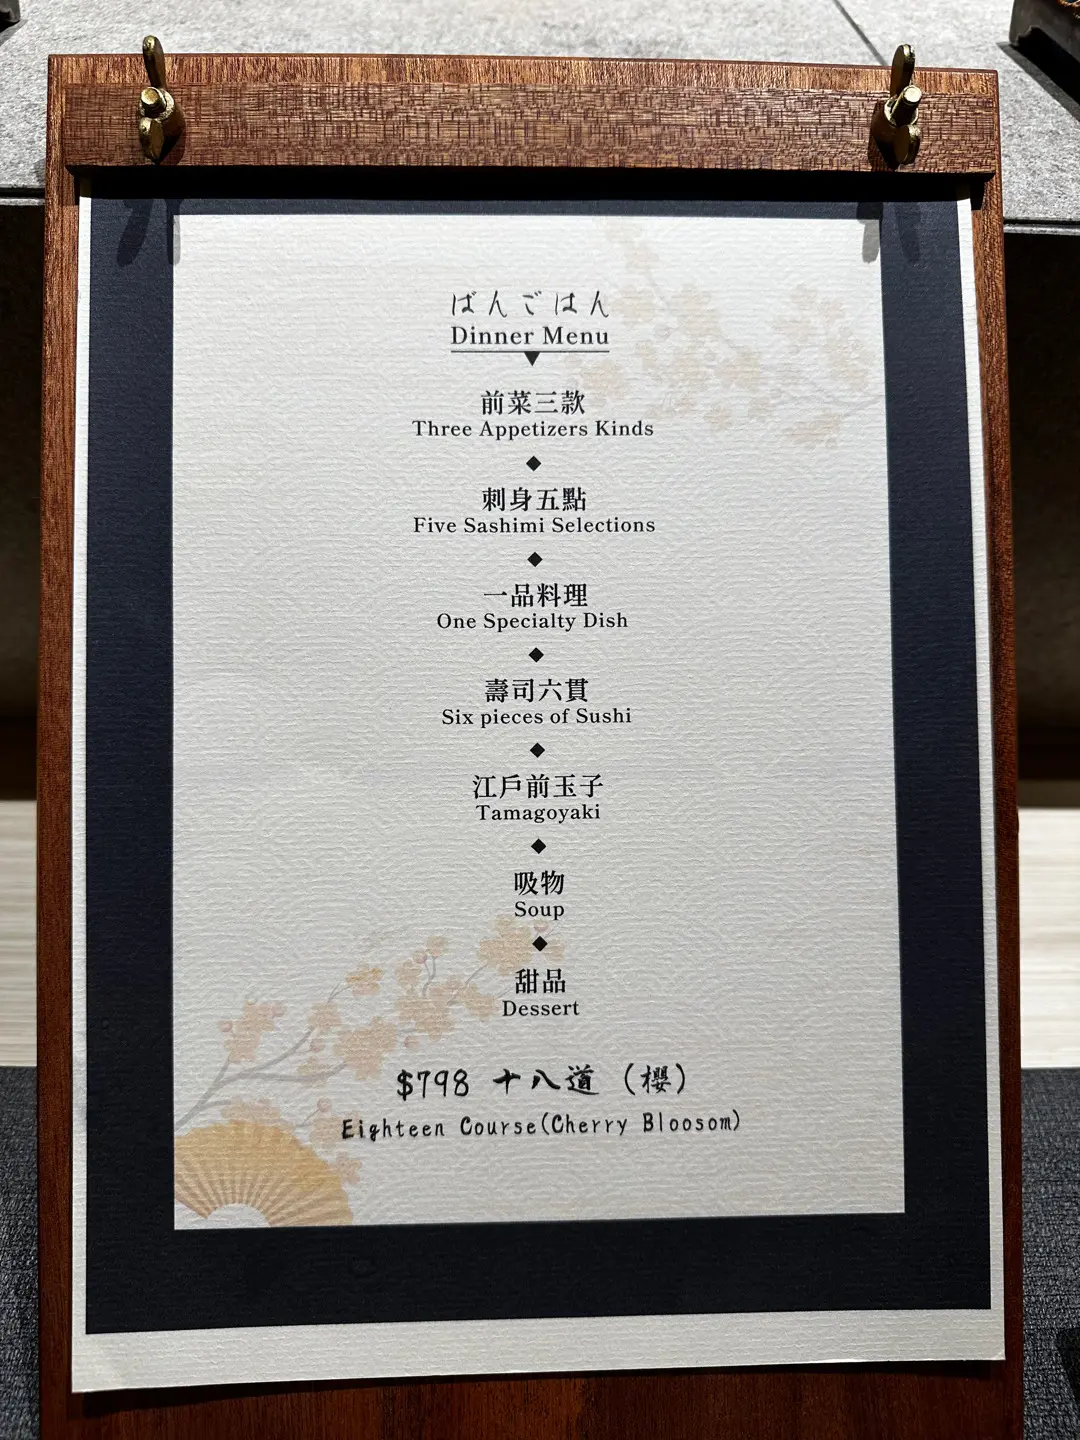 ばんごはん
Dinner Menu
前菜三款
Three Appetizers Kinds
刺身五點
Five Sashimi Selections
一品料理
One Specialty Dish
壽司六貫
Six pieces of Sushi
江戶前玉子
Tamagoyaki
吸物
Soup
甜品
Dessert
$798 十八道 (櫻)
Eighteen Course(Cherry Bloosom)